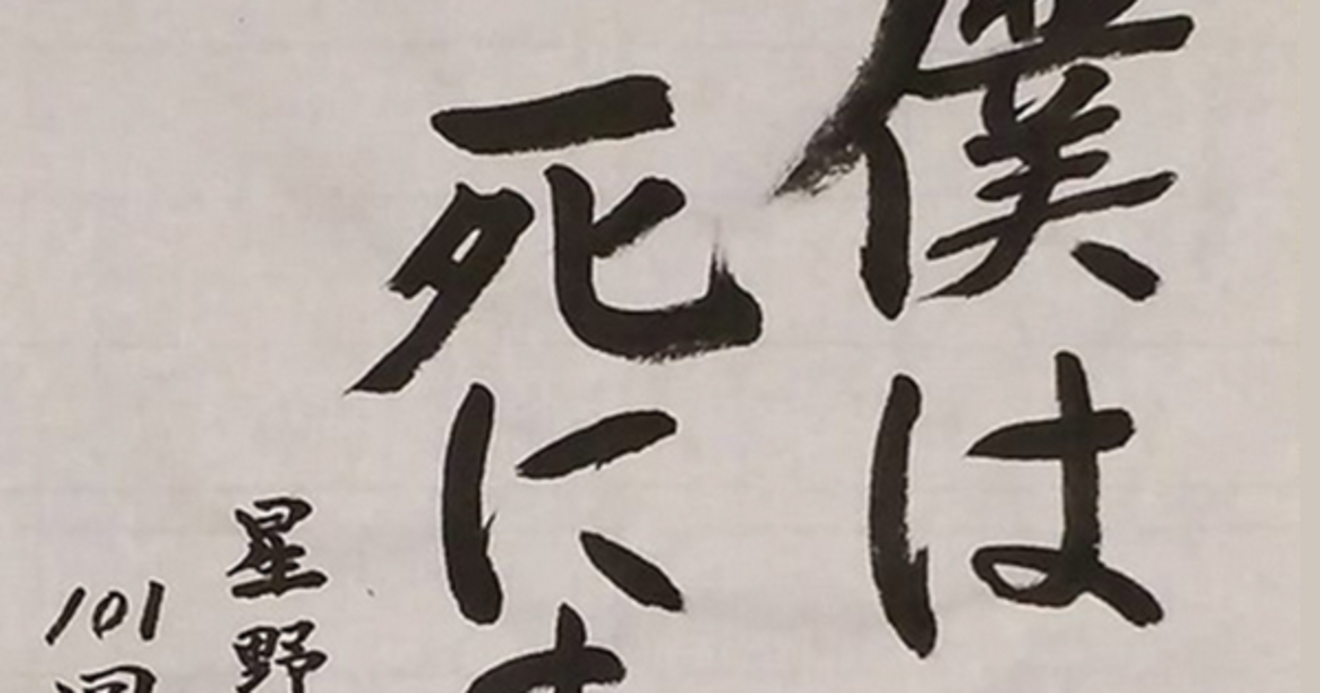 僕は
死に
星野
101回